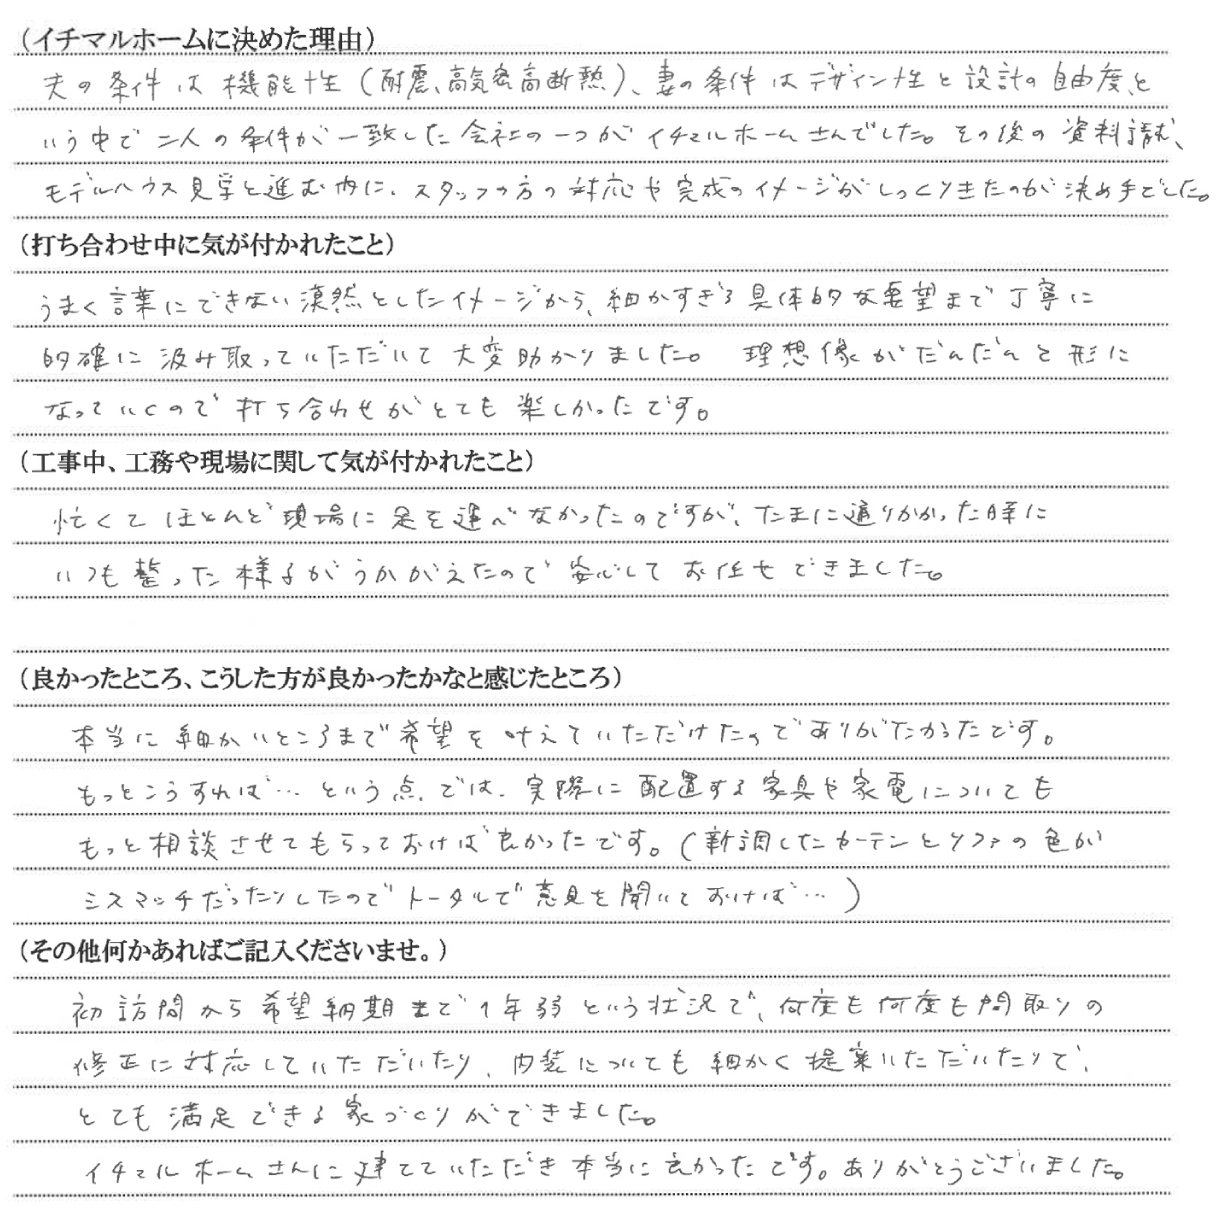 （イチマルホームに決めた理由）
夫の条件は機能性（耐震、高気密高断熱）、妻の条件はデザイン性と設計の自由度、と
いう中で二人の条件が一致した会社の一つがイチマルホームさんでした。その後の資料請求、
モデルハウス見学と進む内に、スタッフの方の対応や完成のイメージがしっくりきたのが決め手でした。
（打ち合わせ中に気が付かれたこと）
うまく言葉にできない漠然としたイメージから、細かすぎる具体的な要望まで丁寧に
的確に汲み取っていただいて大変助かりました。理想像がだんだんと形に
なっていくので打ち合わせがとても楽しかったです。
（工事中、工務や現場に関して気が付かれたこと）
忙くてほとんど現場に足を運べなかったのですが、たまに通りかかった時に
いつも整った様子がうかがえたので安心してお任せできました。
（良かったところ、こうした方が良かったかなと感じたところ）
本当に細かいところまで希望を叶えていただけたのでありがたかったです。
もっとこうすれば…という点では、実際に配置する家具や家電についても
もっと相談させてもらっておけば良かったです。（新調したカーテンとソファの色が
ミスマッチだったりしたのでトータルで意見を聞いておけば…）
（その他何かあればご記入くださいませ。）
初訪問から希望納期まで1年弱という状況で、何度も何度も間取りの
修正に対応していただいたり、内装についても細かく提案いただいたりで、
とても満足できる家づくりができました。
イチマルホームさんに建てていただき本当に良かったです。ありがとうございました。